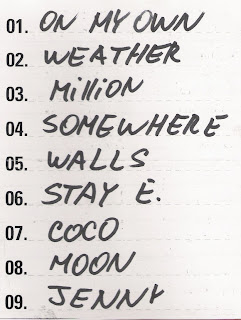 01. ON MY OWN
02. WEATHER
03. Million
04. SOMEWHERE
05. WALLS
06. STAY E.
07. COCO
08. MOON
09. JENNY